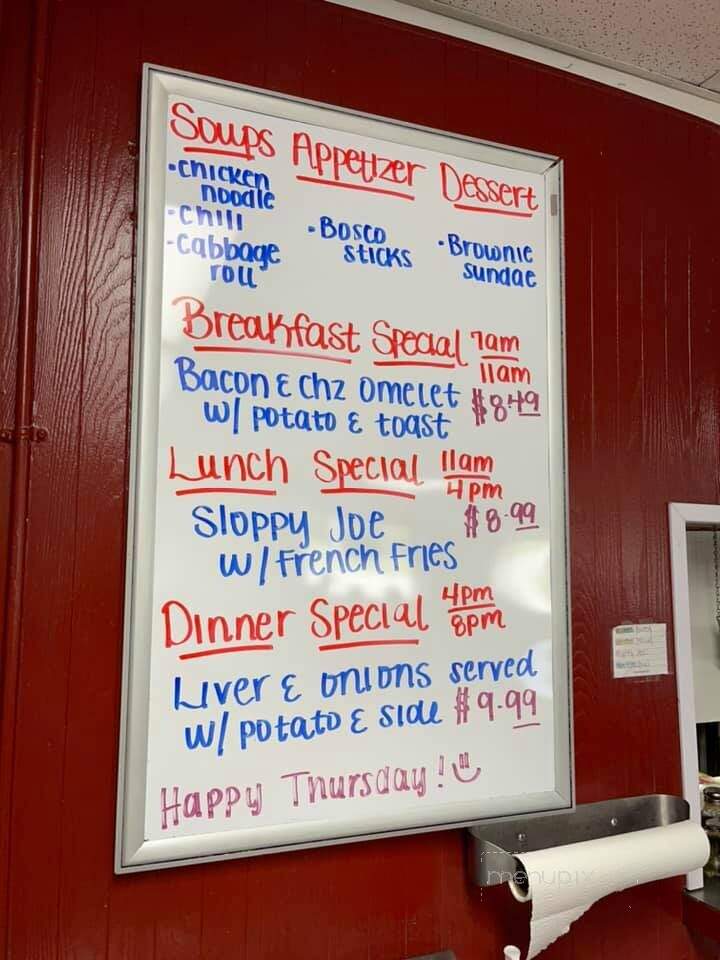 Soups Appetizer Dessert
•Chicken noodle
•Chili
•Cabbage roll
•Bosco sticks
•Brownie sundae
Breakfast Special 7am 11am
Bacon & chz omelet $8.49
w/ potato & toast
Lunch Special 11am 4pm
Sloppy Joe $8.99
w/ French Fries
Dinner Special 4pm 8pm
Liver & onions served
w/ potato & side $9.99
Happy Thursday!
menupix